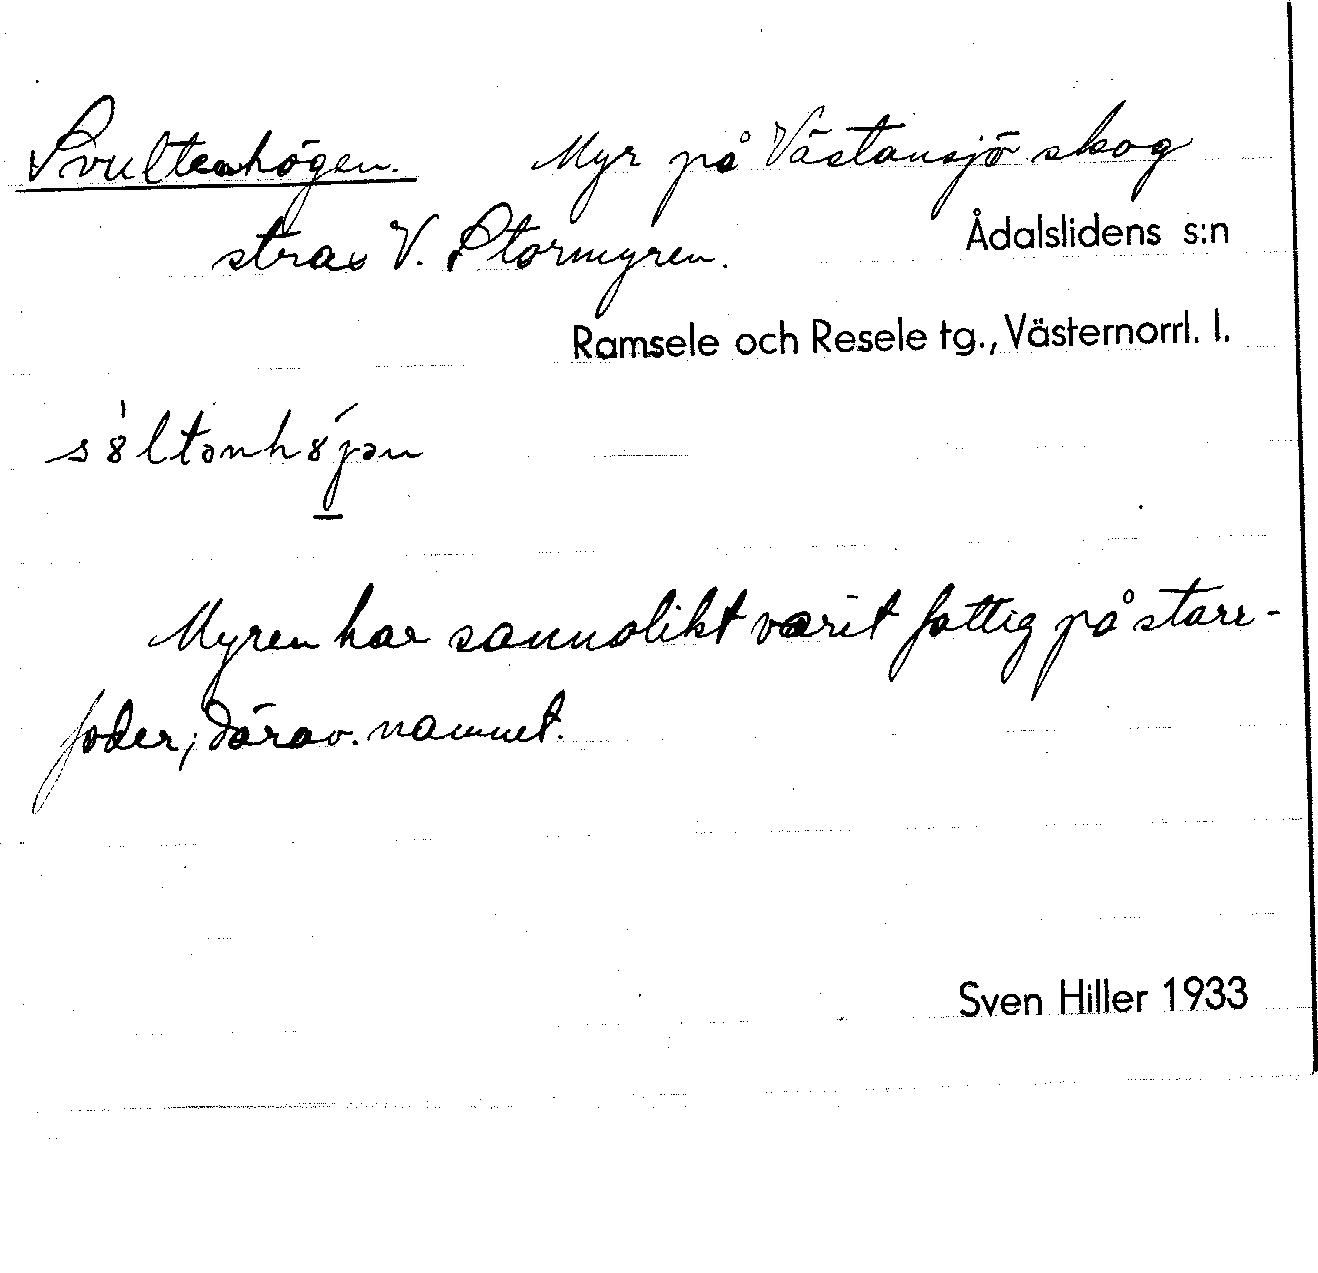 Svultenhögen. Myr på Västansjö skog
strax V. Stormyren. Ådalslidens s:n
Ramsele och Resele tg., Västernorrl. l.
Myren har sannolikt varit fattig på starr-
foder; därav namnet.
Sven Hiller 1933